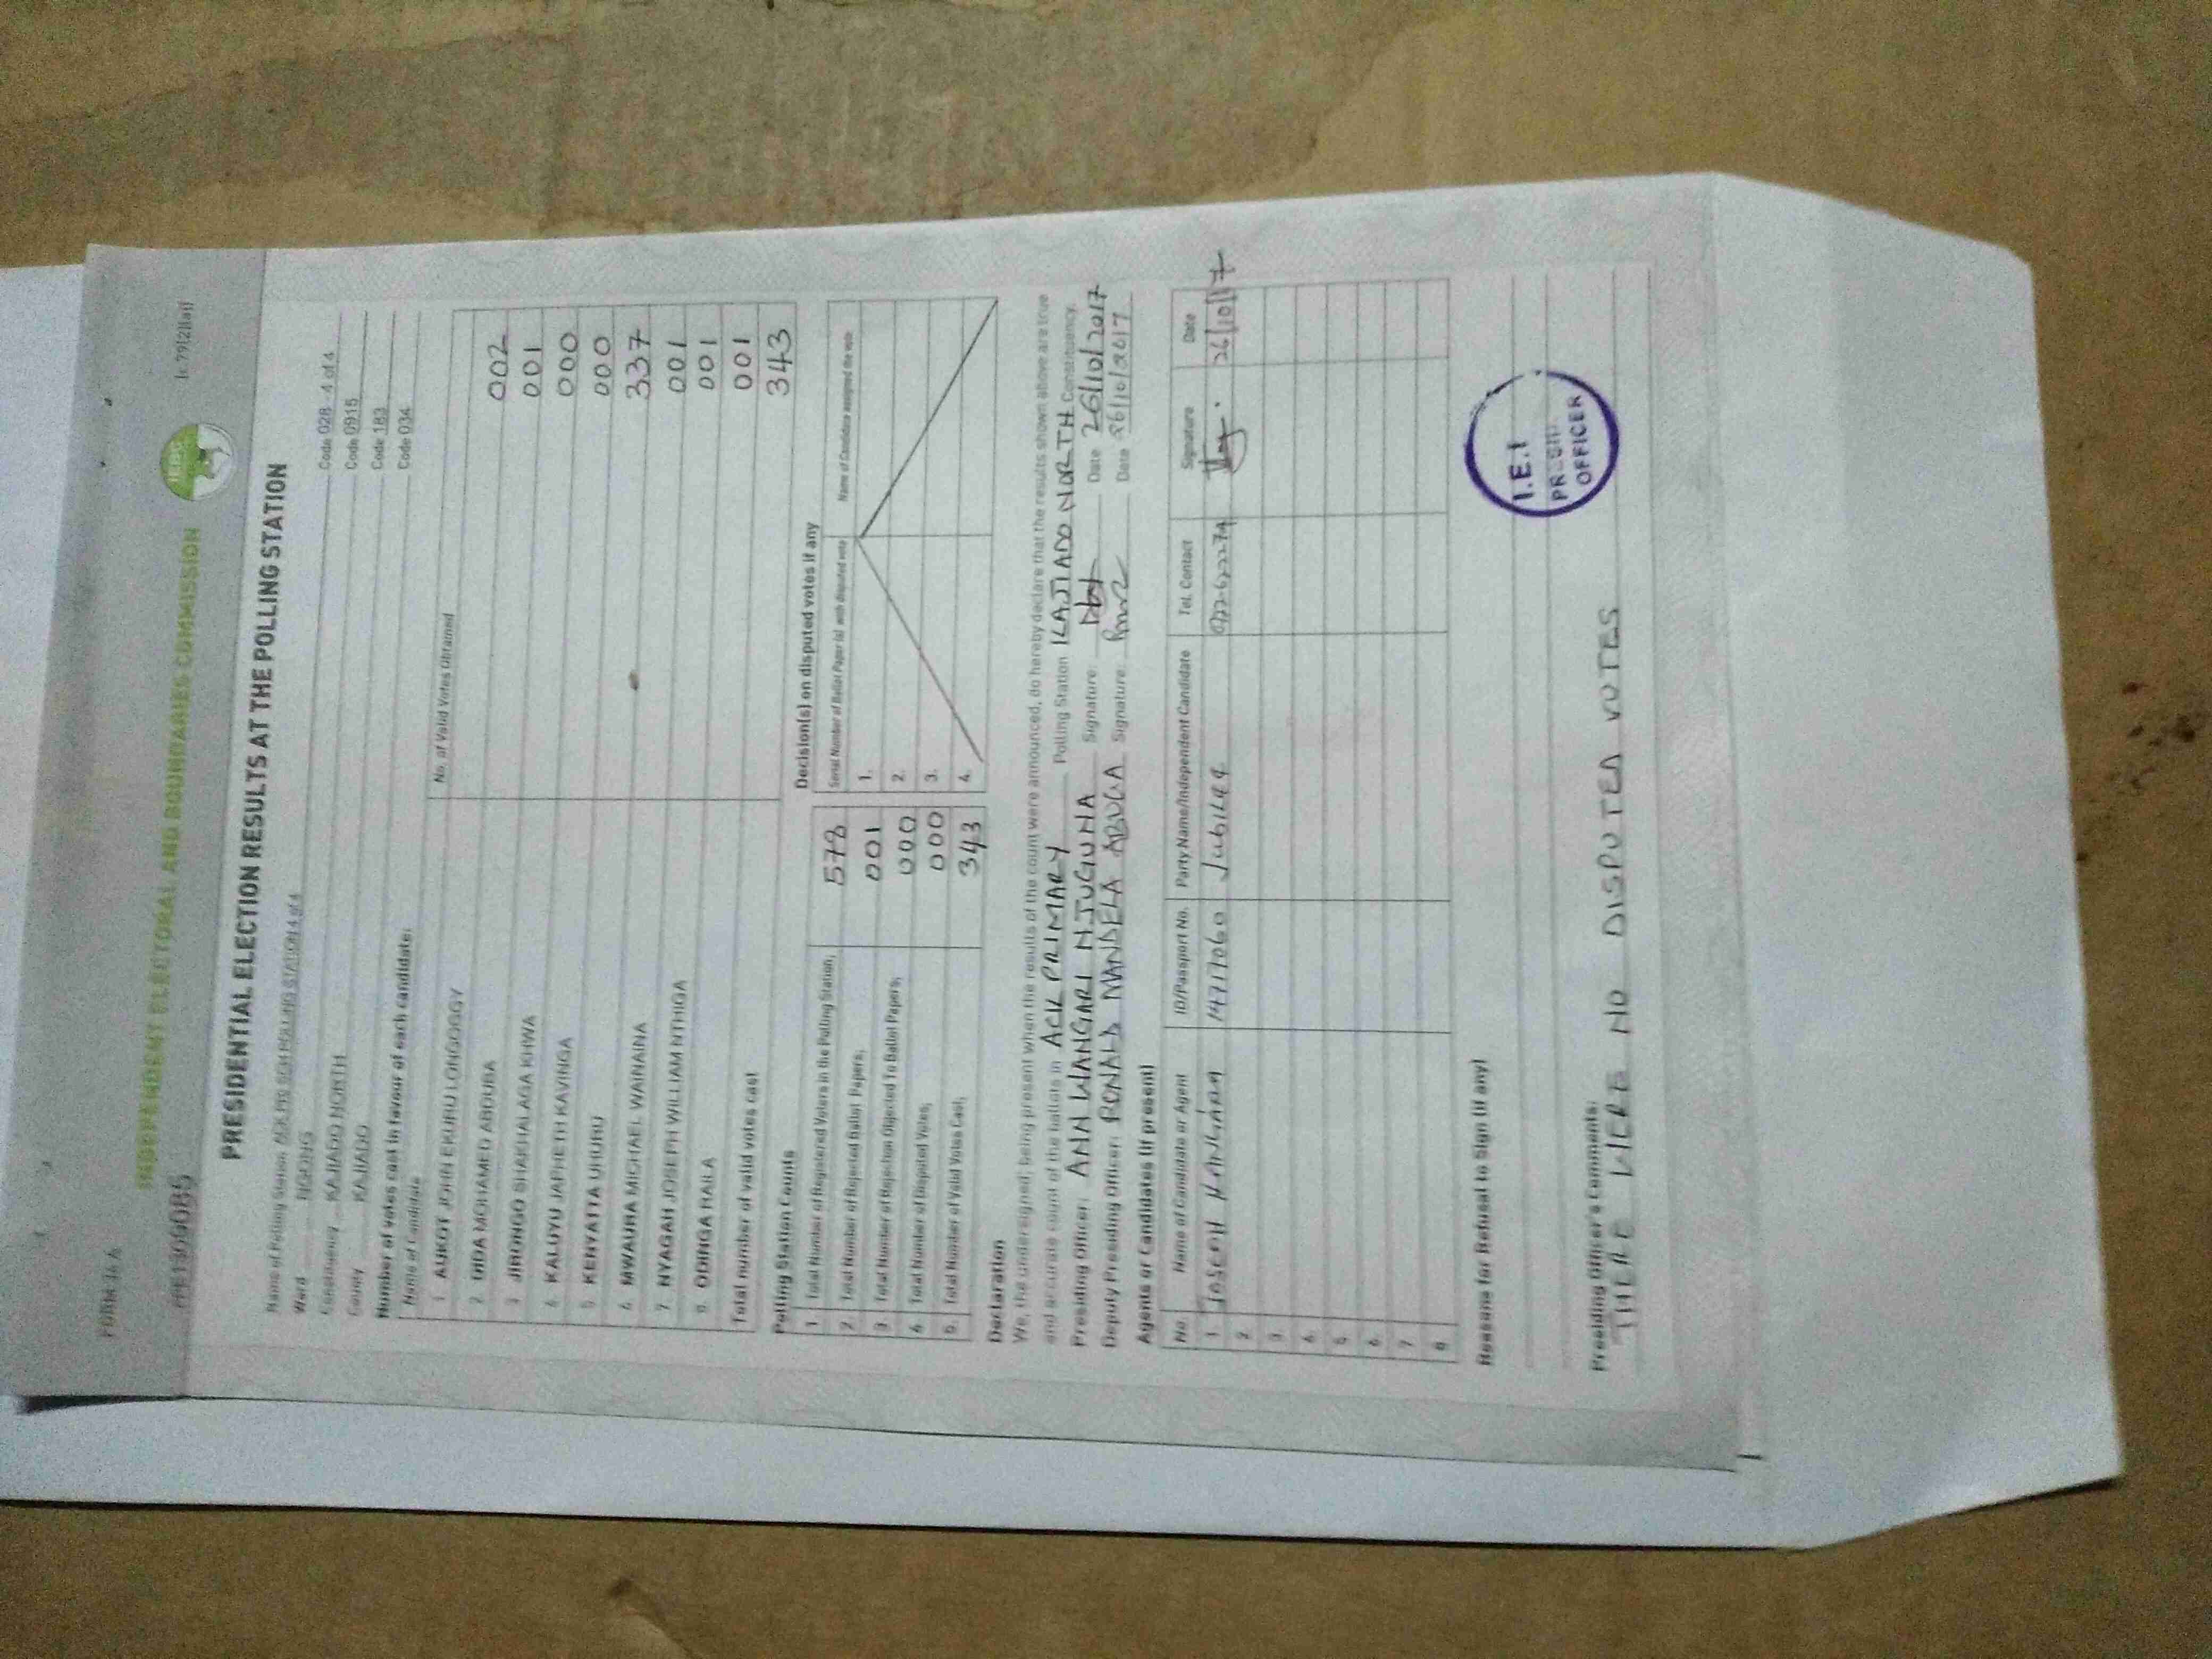 FORM 34A
INDEPENDENT ELECTORAL AND BOUNDARIES COMMISSION
(r.79(2)(a))
PRESIDENTIAL ELECTION RESULTS AT THE POLLING STATION
Name of Polling Station Code 028 - 4 of 4
Ward NGONG Code 0915
Constituency KAJIADO NORTH Code 183
County KAJIADO Code 034
Number of votes cast in favour of each candidate:
Name of Candidate No. of Valid Votes Obtained
1 AUKOT JOHN EKURU LONGOGGY 002
2 DIDA MOHAMED ABDUBA 001
3 JIRONGO SHAKHALAGA KHWA 000
4 KALUYU JAPHETH KAVINGA 000
5 KENYATTA UHURU 337
6 MWAURA MICHAEL WAINAINA 001
7 NYAGAH JOSEPH WILLIAM NTHIGA 001
8 ODINGA RAILA 001
Total number of valid votes cast 343
Polling Station Counts
1. Total Number of Registered Voters in the Polling Station; 578
2. Total Number of Rejected Ballot Papers; 001
3. Total Number of Rejection Objected To Ballot Papers; 000
4 Total Number of Disputed Votes; 000
5. Total Number of Valid Votes Cast; 343
Decision(s) on disputed votes if any
Serial Number of Ballot Paper (s) with disputed vote Name of Candidate assigned the vote
1.
2.
3.
4.
Declaration
We, the undersigned; being present when the results of the count were announced, do hereby declare that the results shown above are true
and accurate count of the ballots in ACK PRIMARY Polling Station KAJIADO NORTH Constituency.
Presiding Officer: ANN WANGARI NJUGUNA Signature: Date 26/10/2017
Deputy Presiding Officer: RONALD MANDELA ABUGA Signature: Date 26/10/2017
Agents or Candidates (if present)
No. Name of Candidate or Agent ID/Passport No. Party Name/Independent Candidate Tel. Contact Signature Date
1 JOSEPH 26/10/17
2
3
4
5
6
7
8
Reasons for Refusal to Sign (if any)
I.E.
OFFICER
Presiding Officer's Comments:
THERE WERE NO DISPUTED VOTES